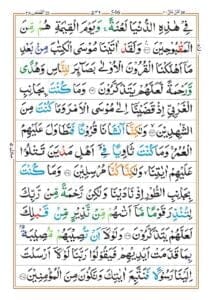 فِيْ هٰذِهِ الدُّنْيَا لَعْنَةً ۚ وَيَوْمَ الْقِيٰمَةِ هُمْ مِّنَ
الْمَقْبُوْحِيْنَ ۝ وَلَقَدْ اٰتَيْنَا مُوْسَى الْكِتٰبَ مِنْۢ بَعْدِ
مَاۤ اَهْلَكْنَا الْقُرُوْنَ الْاُوْلٰى بَصَآئِرَ لِلنَّاسِ وَهُدًى وَّ
رَحْمَةً لَّعَلَّهُمْ يَتَذَكَّرُوْنَ ۝ وَمَا كُنْتَ بِجَانِبِ
الْغَرْبِيِّ اِذْ قَضَيْنَاۤ اِلٰى مُوْسَى الْاَمْرَ وَمَا كُنْتَ مِنَ
الشّٰهِدِيْنَ ۝ وَلٰكِنَّاۤ اَنْشَاْنَا قُرُوْنًا فَتَطَاوَلَ عَلَيْهِمُ
الْعُمُرُ ۚ وَمَا كُنْتَ ثَاوِيًا فِيْۤ اَهْلِ مَدْيَنَ تَتْلُوْا
عَلَيْهِمْ اٰيٰتِنَا ۙ وَلٰكِنَّا كُنَّا مُرْسِلِيْنَ ۝ وَمَا كُنْتَ
بِجَانِبِ الطُّوْرِ اِذْ نَادَيْنَا وَلٰكِنْ رَّحْمَةً مِّنْ رَّبِّكَ
لِتُنْذِرَ قَوْمًا مَّاۤ اَتٰىهُمْ مِّنْ نَّذِيْرٍ مِّنْ قَبْلِكَ
لَعَلَّهُمْ يَتَذَكَّرُوْنَ ۝ وَلَوْلَاۤ اَنْ تُصِيْبَهُمْ مُّصِيْبَةٌۢ
بِمَا قَدَّمَتْ اَيْدِيْهِمْ فَيَقُوْلُوْا رَبَّنَا لَوْلَاۤ اَرْسَلْتَ
اِلَيْنَا رَسُوْلًا فَنَتَّبِعَ اٰيٰتِكَ وَنَكُوْنَ مِنَ الْمُؤْمِنِيْنَ ۝